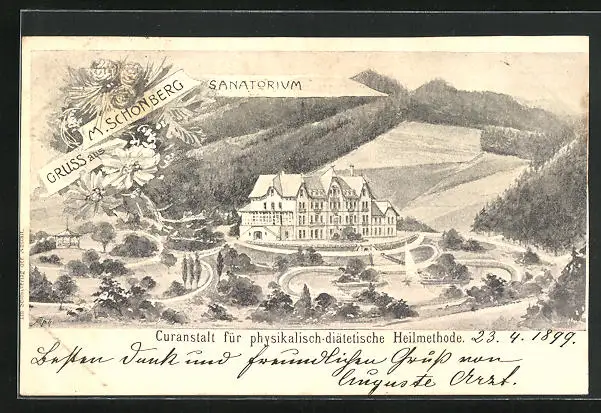 GRUSS aus
M. SCHÖNBERG
SANATORIUM
Curanstalt für physikalisch-diätetische Heilmethode. 23. 4. 1899.
Besten Dank und freundlichen Gruß von
Auguste Arzt.